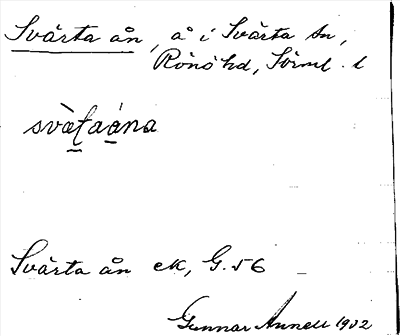 Svärta ån, å i Svärta sn,
Rönö hd, Sörml. l
svä̀ʈaána
Svärta ån ek, G. 56
Gunnar Annell 1902